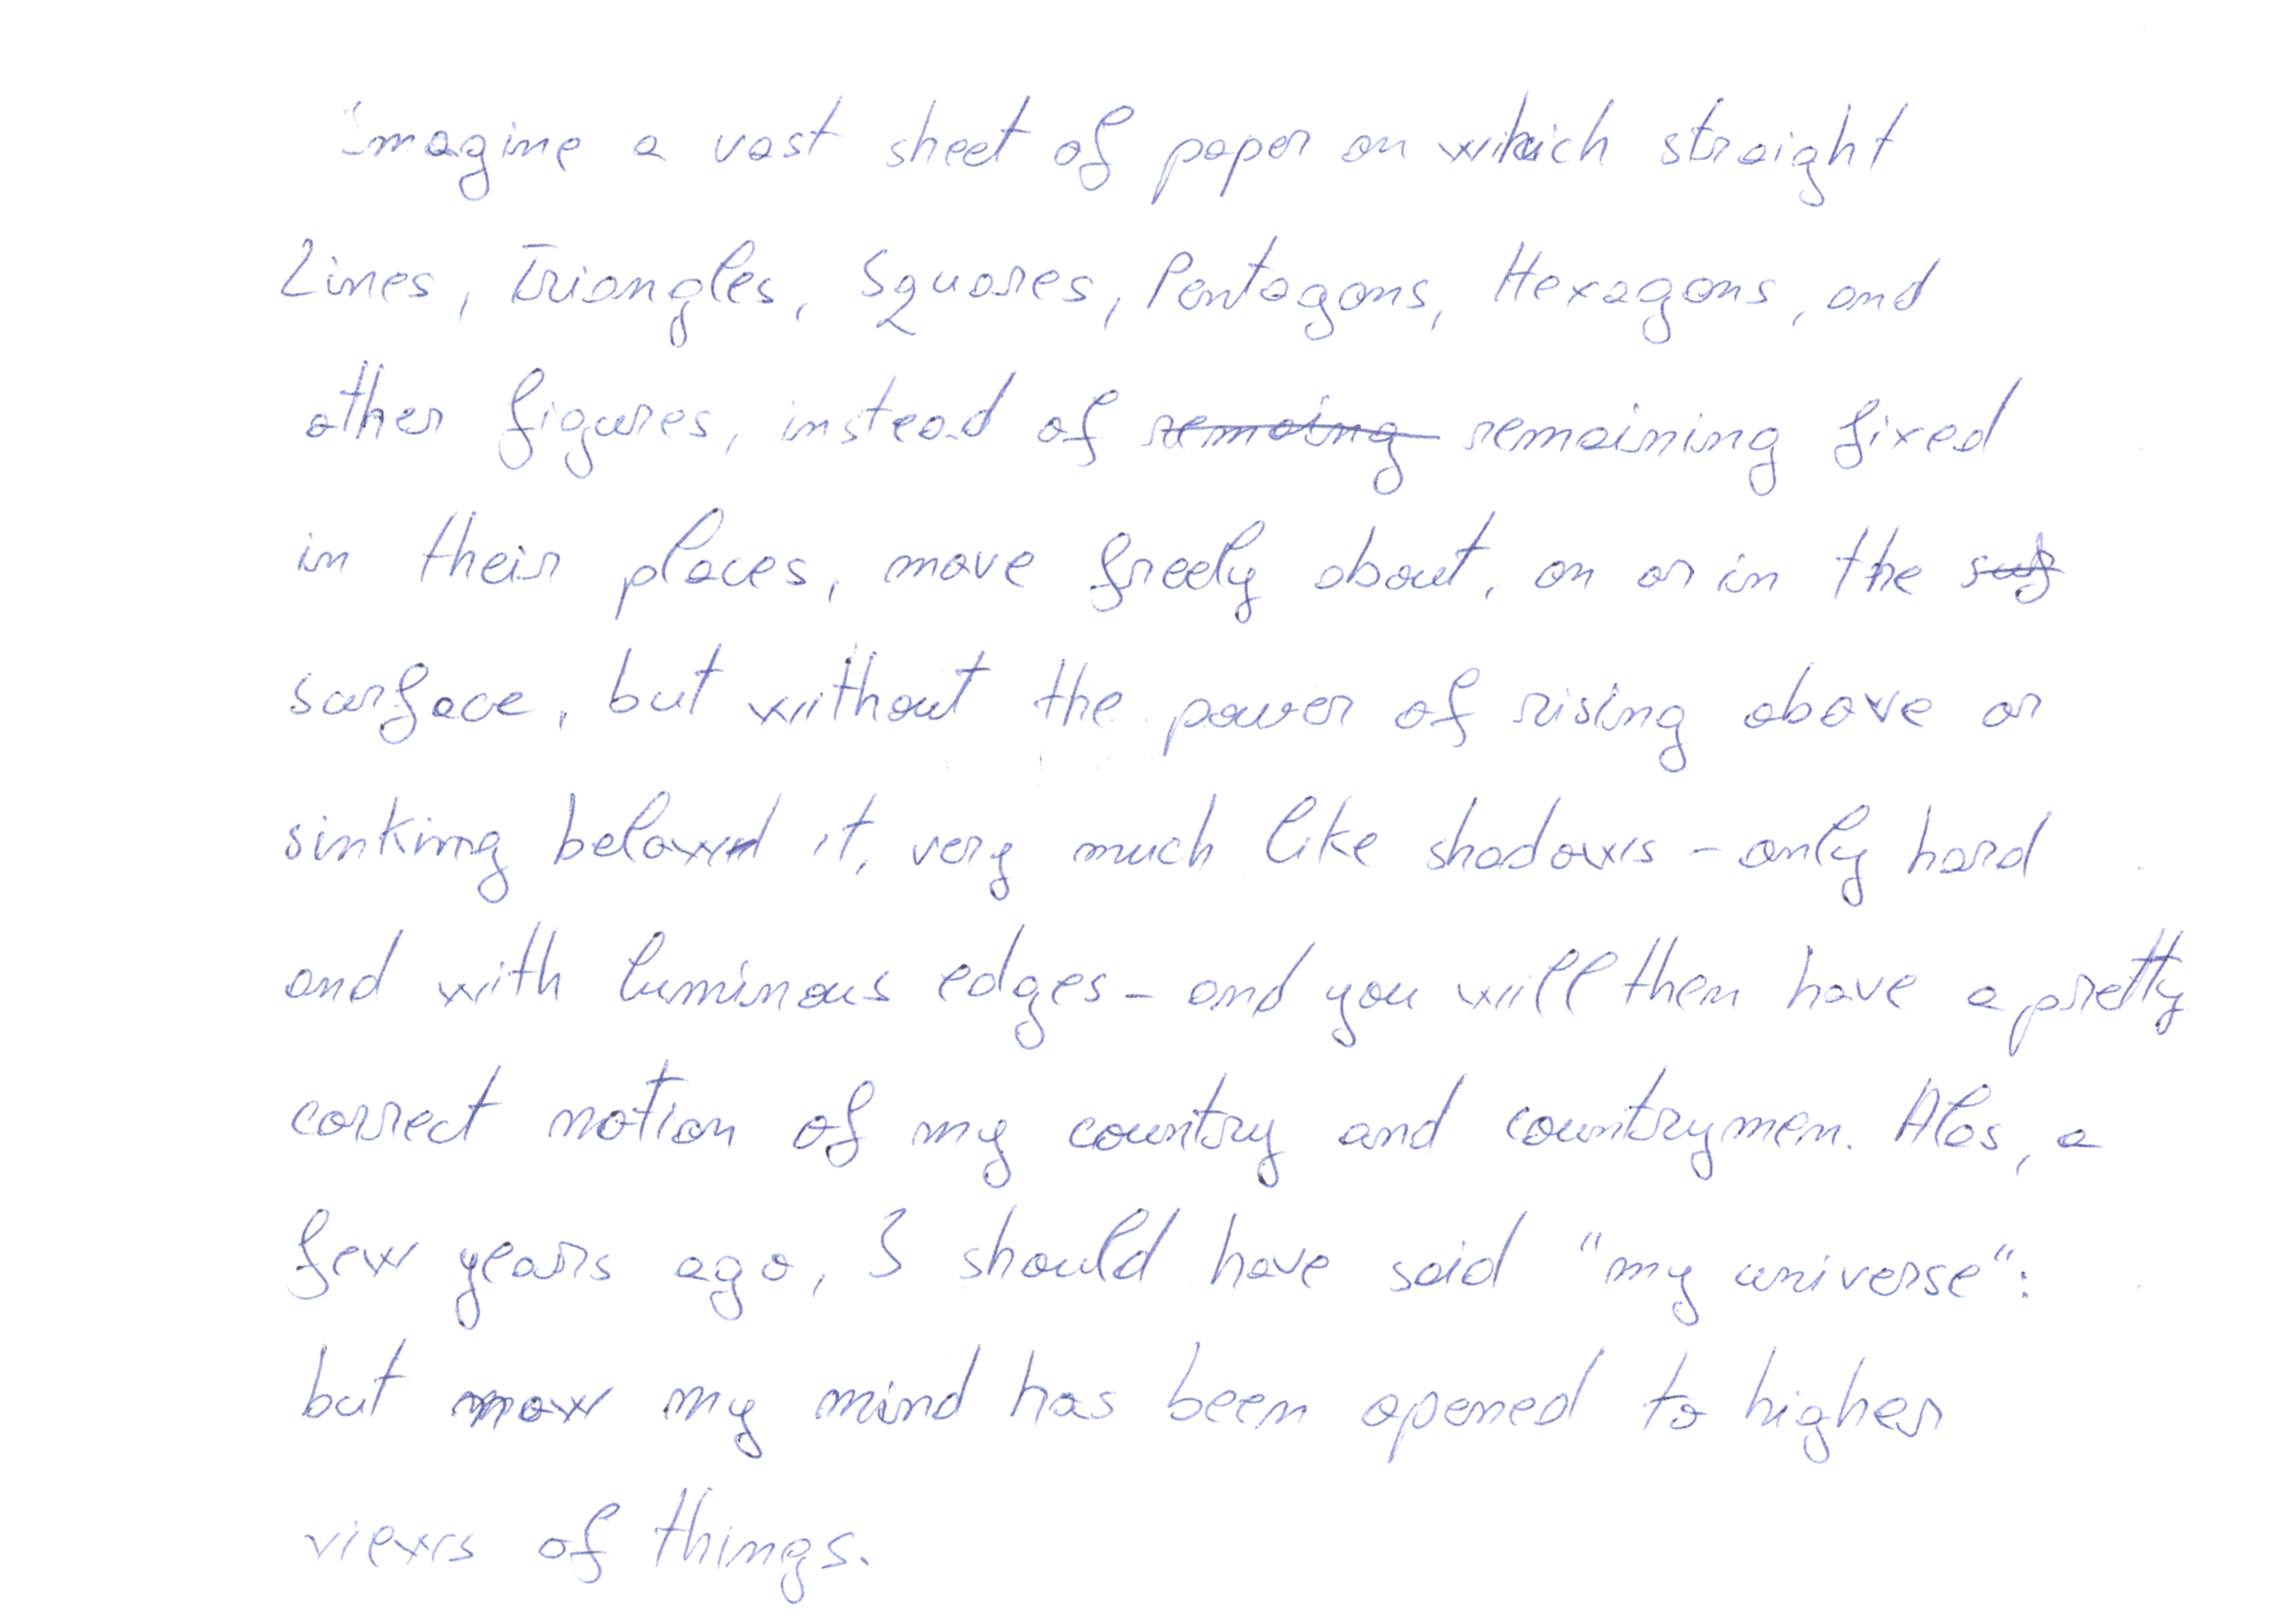 Imagine a vast sheet of paper on which straight
Lines, Triangles, Squares, Pentagons, Hexagons, and
other figures, instead of remaing remaining fixed
in their places, move freely about, on or in the suf
surface, but without the power of rising above or
sinking below it, very much like shadows - only hard
and with luminous edges - and you will then have a pretty
correct notion of my country and countrymen. Alas, a
few years ago, I should have said "my universe":
but now my mind has been opened to higher
views of things.